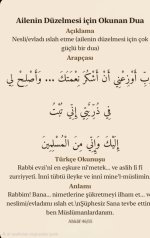 Ailenin Düzelmesi için Okunan Dua
Açıklama
Nesli/evladı ıslah etme (ailenin düzelmesi için çok
güçlü bir dua)
Arapçası
رَبِّ أَوْزِعْنِي أَنْ أَشْكُرَ نِعْمَتَكَ ... وَأَصْلِحْ لِي
فِي ذُرِّيَّتِي إِنِّي تُبْتُ
إِلَيْكَ وَإِنِّي مِنَ الْمُسْلِمِينَ
Türkçe Okunuşu
Rabbi evzi'ni en eşkure ni'metek... ve aslih lî fî
zurriyetî. İnnî tübtü ileyke ve innî mine'l-müslimîn.
Anlamı
Rabbim! Bana... nimetlerine şükretmeyi ilham et... ve
neslimi/evladımı ıslah et.\nŞüphesiz Sana tevbe ettim
ben Müslümanlardanım.
Ahkâf 46/15